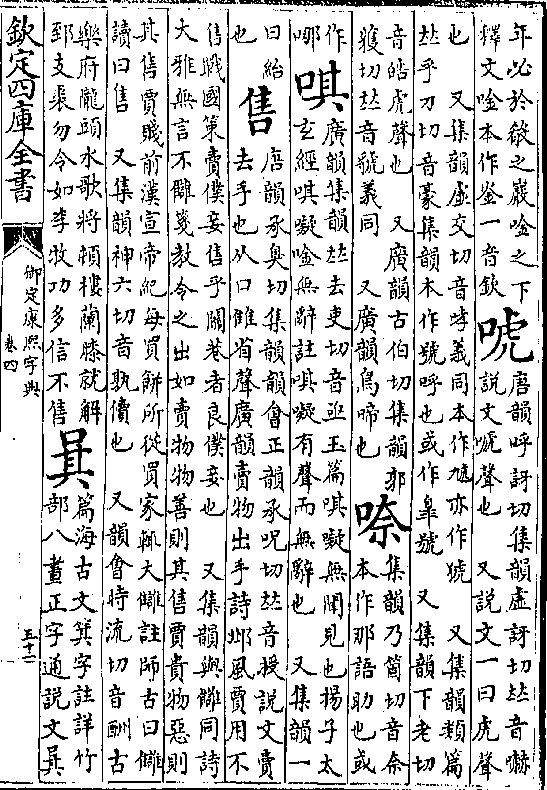 年必於殽之巖唫之下
釋文唫本作崟一音欽
唬
唐韻呼訝切集韻虛訝切𠀤音嚇
說文嗁聲也 又說文一曰虎聲
也 又集韻虛交切音哮義同本作虓亦作猇 又集韻類篇
𠀤乎刀切音豪集韻本作號呼也或作皐號 又集韻下老切
音皓虎聲也 又廣韻古伯切集韻郭
獲切𠀤音虢義同 又廣韻鳥啼也
㖠
集韻乃箇切音奈
本作那語助也或
作
哪
唭
廣韻集韻𠀤去吏切音亟玉篇唭㘈無聞見也揚子太
玄經唭㘈唫無辭註唭㘈有聲而無辭也 又集韻一
曰紿
也
售
唐韻承臭切集韻韻會正韻承呪切𠀤音授說文賣
去手也从口雔省聲廣韻賣物出手詩邶風賈用不
售戰國策賣僕妾售乎閭巷者良僕妾也 又集韻與讎同詩
大雅無言不讎箋教令之出如賣物物善則其售賈貴物惡則
其售賈賤前漢宣帝紀每買餅所從買家輒大讎註師古曰讎
讀曰售 又集韻神六切音孰儥也 又韻會時流切音酬古
樂府隴頭水歌將頓樓蘭膝就解
郅支裘勿令如李牧功多信不售
㖵
篇海古文箕字註詳竹
部八畫正字通說文㠱
欽定四庫全書
御定康熙字典
卷四
五十二